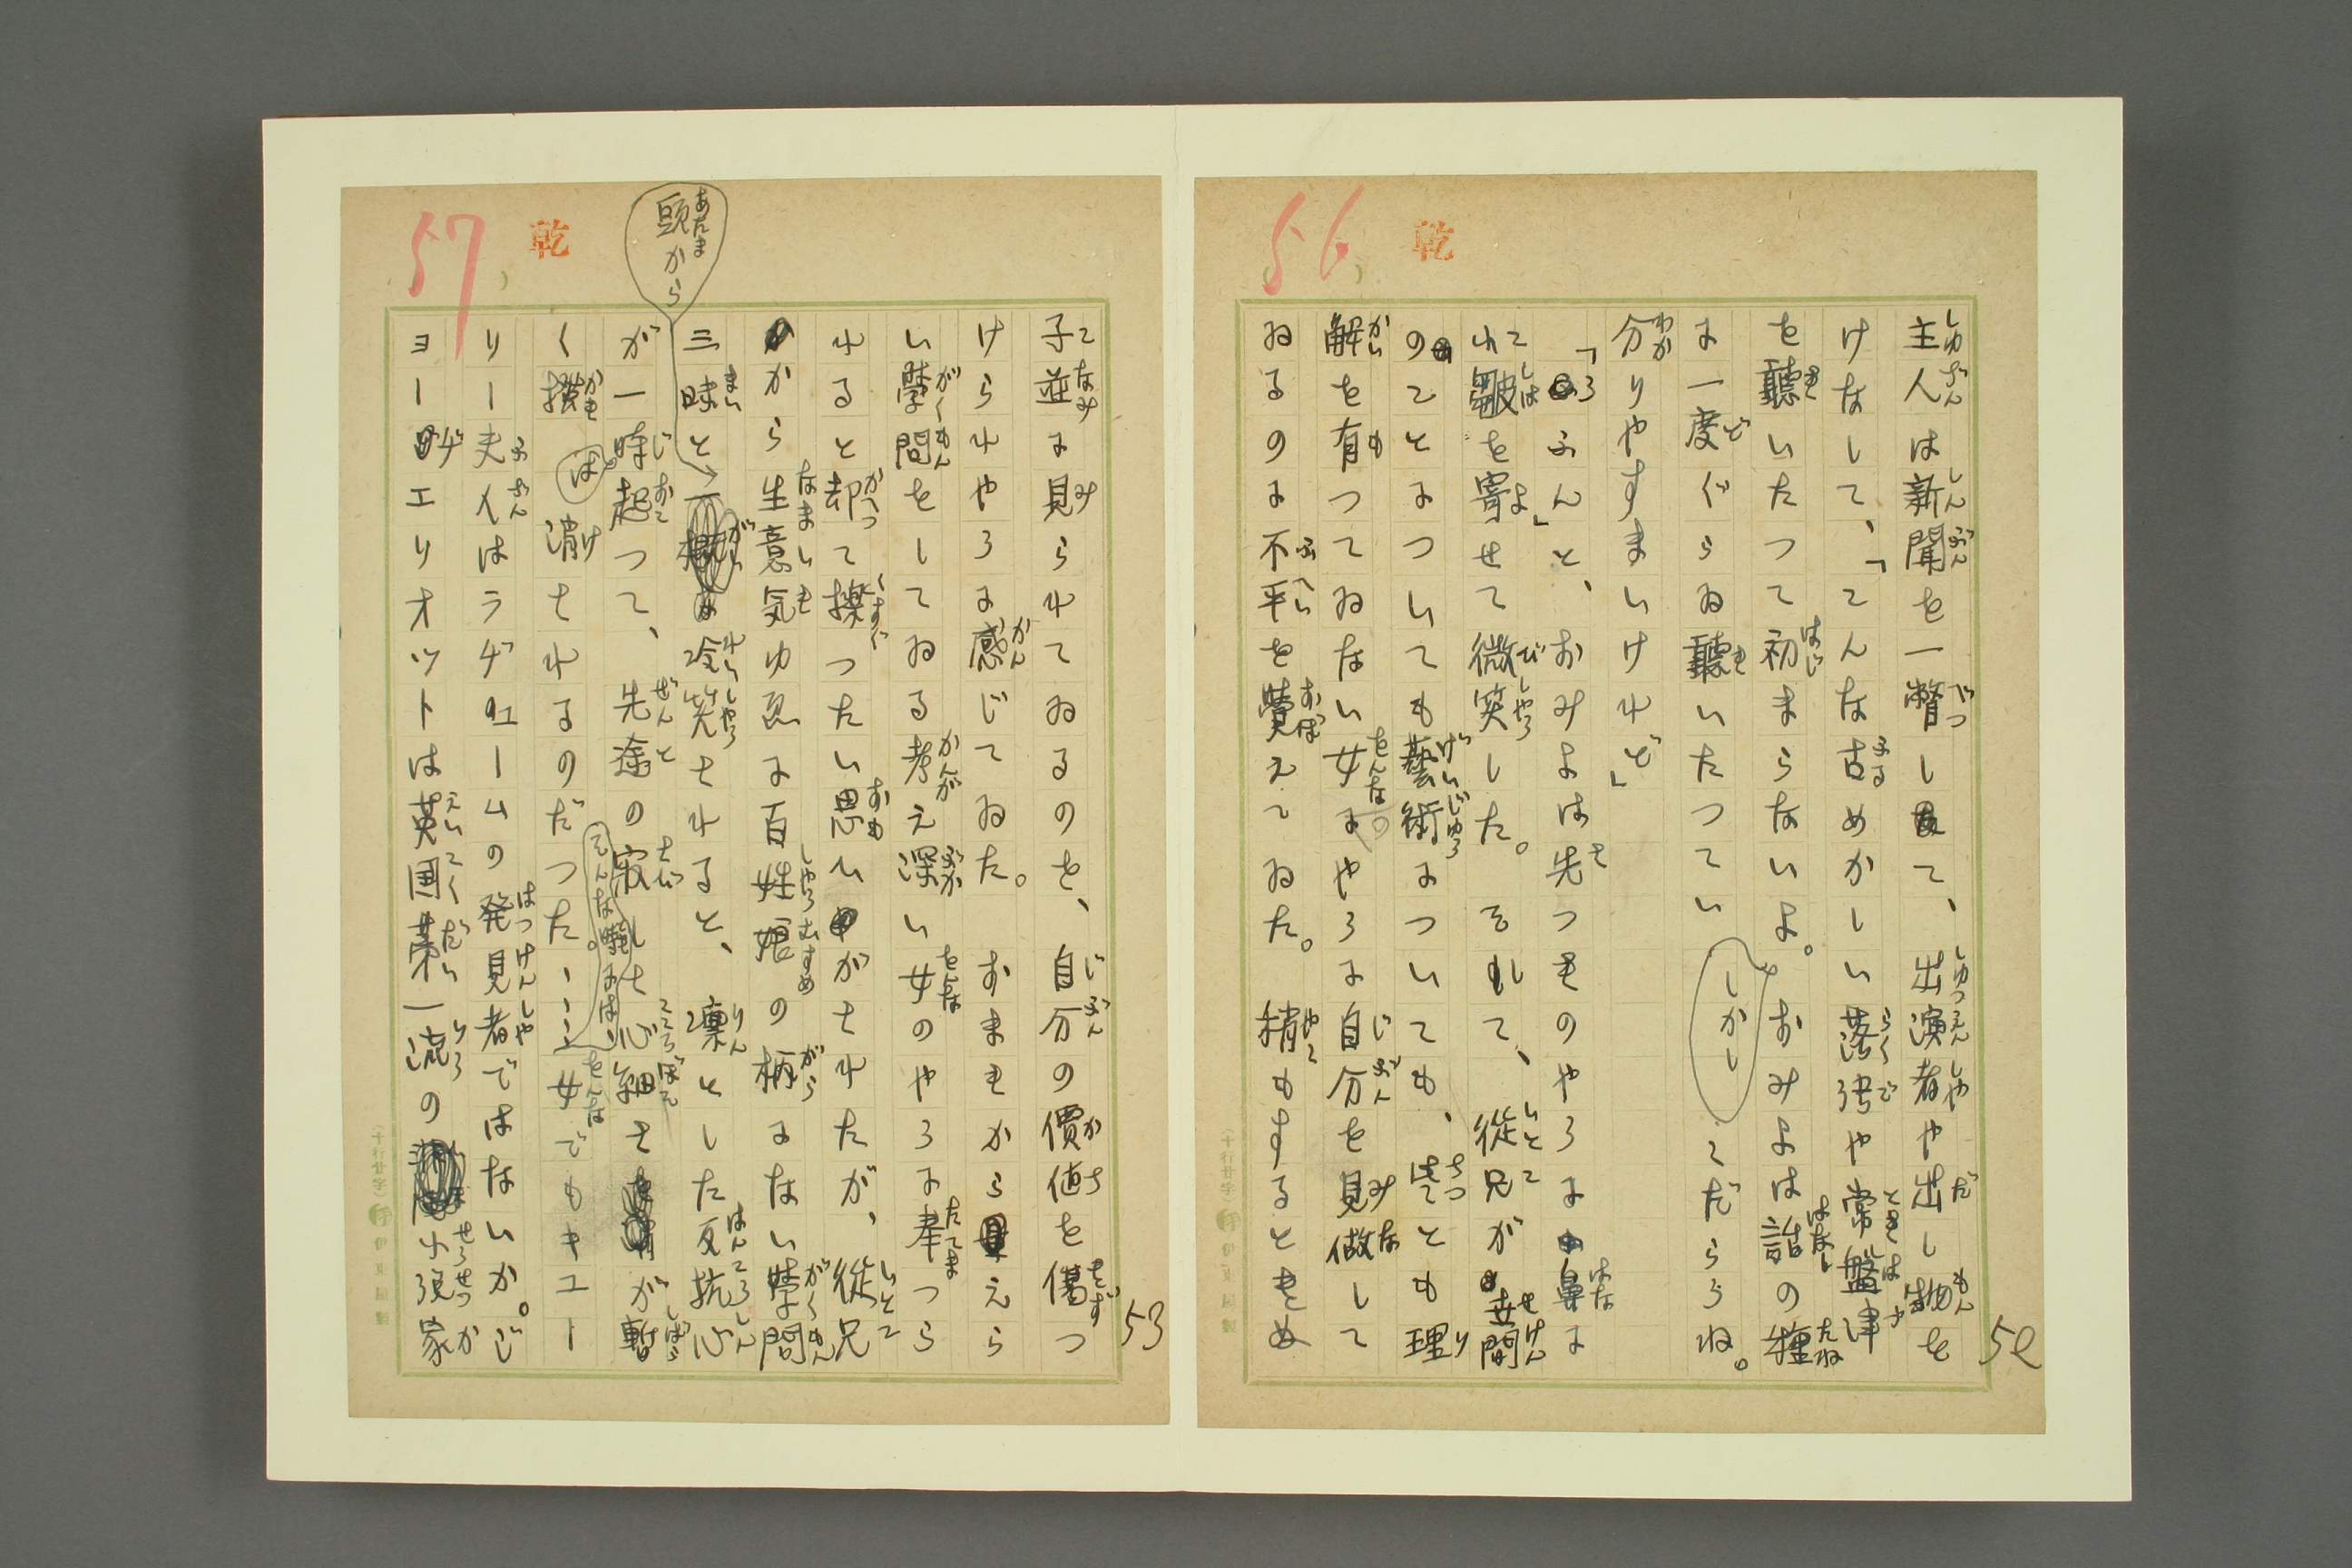 56
乾
52
主人は新聞を一瞥して、出演者や出し物を
けなして、「こんな古めかしい落語や常盤津
を聽いたつて初まらないよ。おみよは話の種
に一度ぐらゐ聽いたつていゝだらうね。
しかし
分りやすまいけれど」
「ふふん」と、おみよは先つきのやうに鼻に
小皺を寄せて微笑した。そして、從兄が世間
のことについても藝術についても、些とも理
解を有つてゐない女のやうに自分を見做して
ゐるのに不平を覺えてゐた。稍もするときめ
57
乾
53
子並に見られてゐるのを、自分の價値を傷つ
けられやうに感じてゐた。おまきから
い學問をしてゐる考え深い女のやうに奉つら
れると却て擽つたい思ひがされたが、從兄
から生意気ゆゑに百姓娘の柄にない學問
三昧と
頭から
冷笑されると、凛とした反抗心
が一時起つて、先途の寂しさ心細さが暫
く掻
は
消されるのだつた。……女でもキユー
そんな時には、
リー夫人はラヂユームの発見者ではないか。ジ
ヨーヂエリオツトは英国第一流の小説家